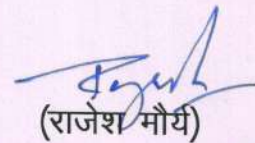 (राजेश मौर्य)